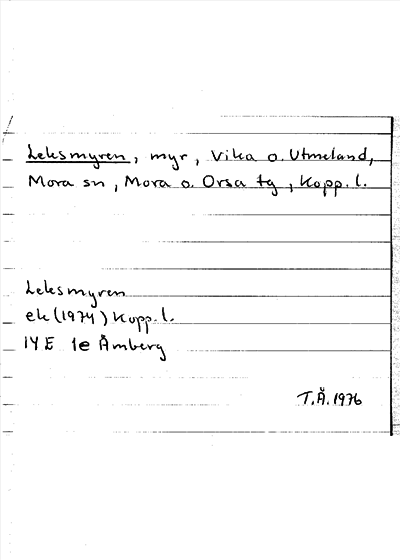 Leksmyren, myr, Vika o. Utmeland,
Mora sn, Mora o. Orsa tg, Kopp. l.
Leksmyren
ek (1974) Kopp. l.
14 E 1e Åmberg
T.Å. 1976